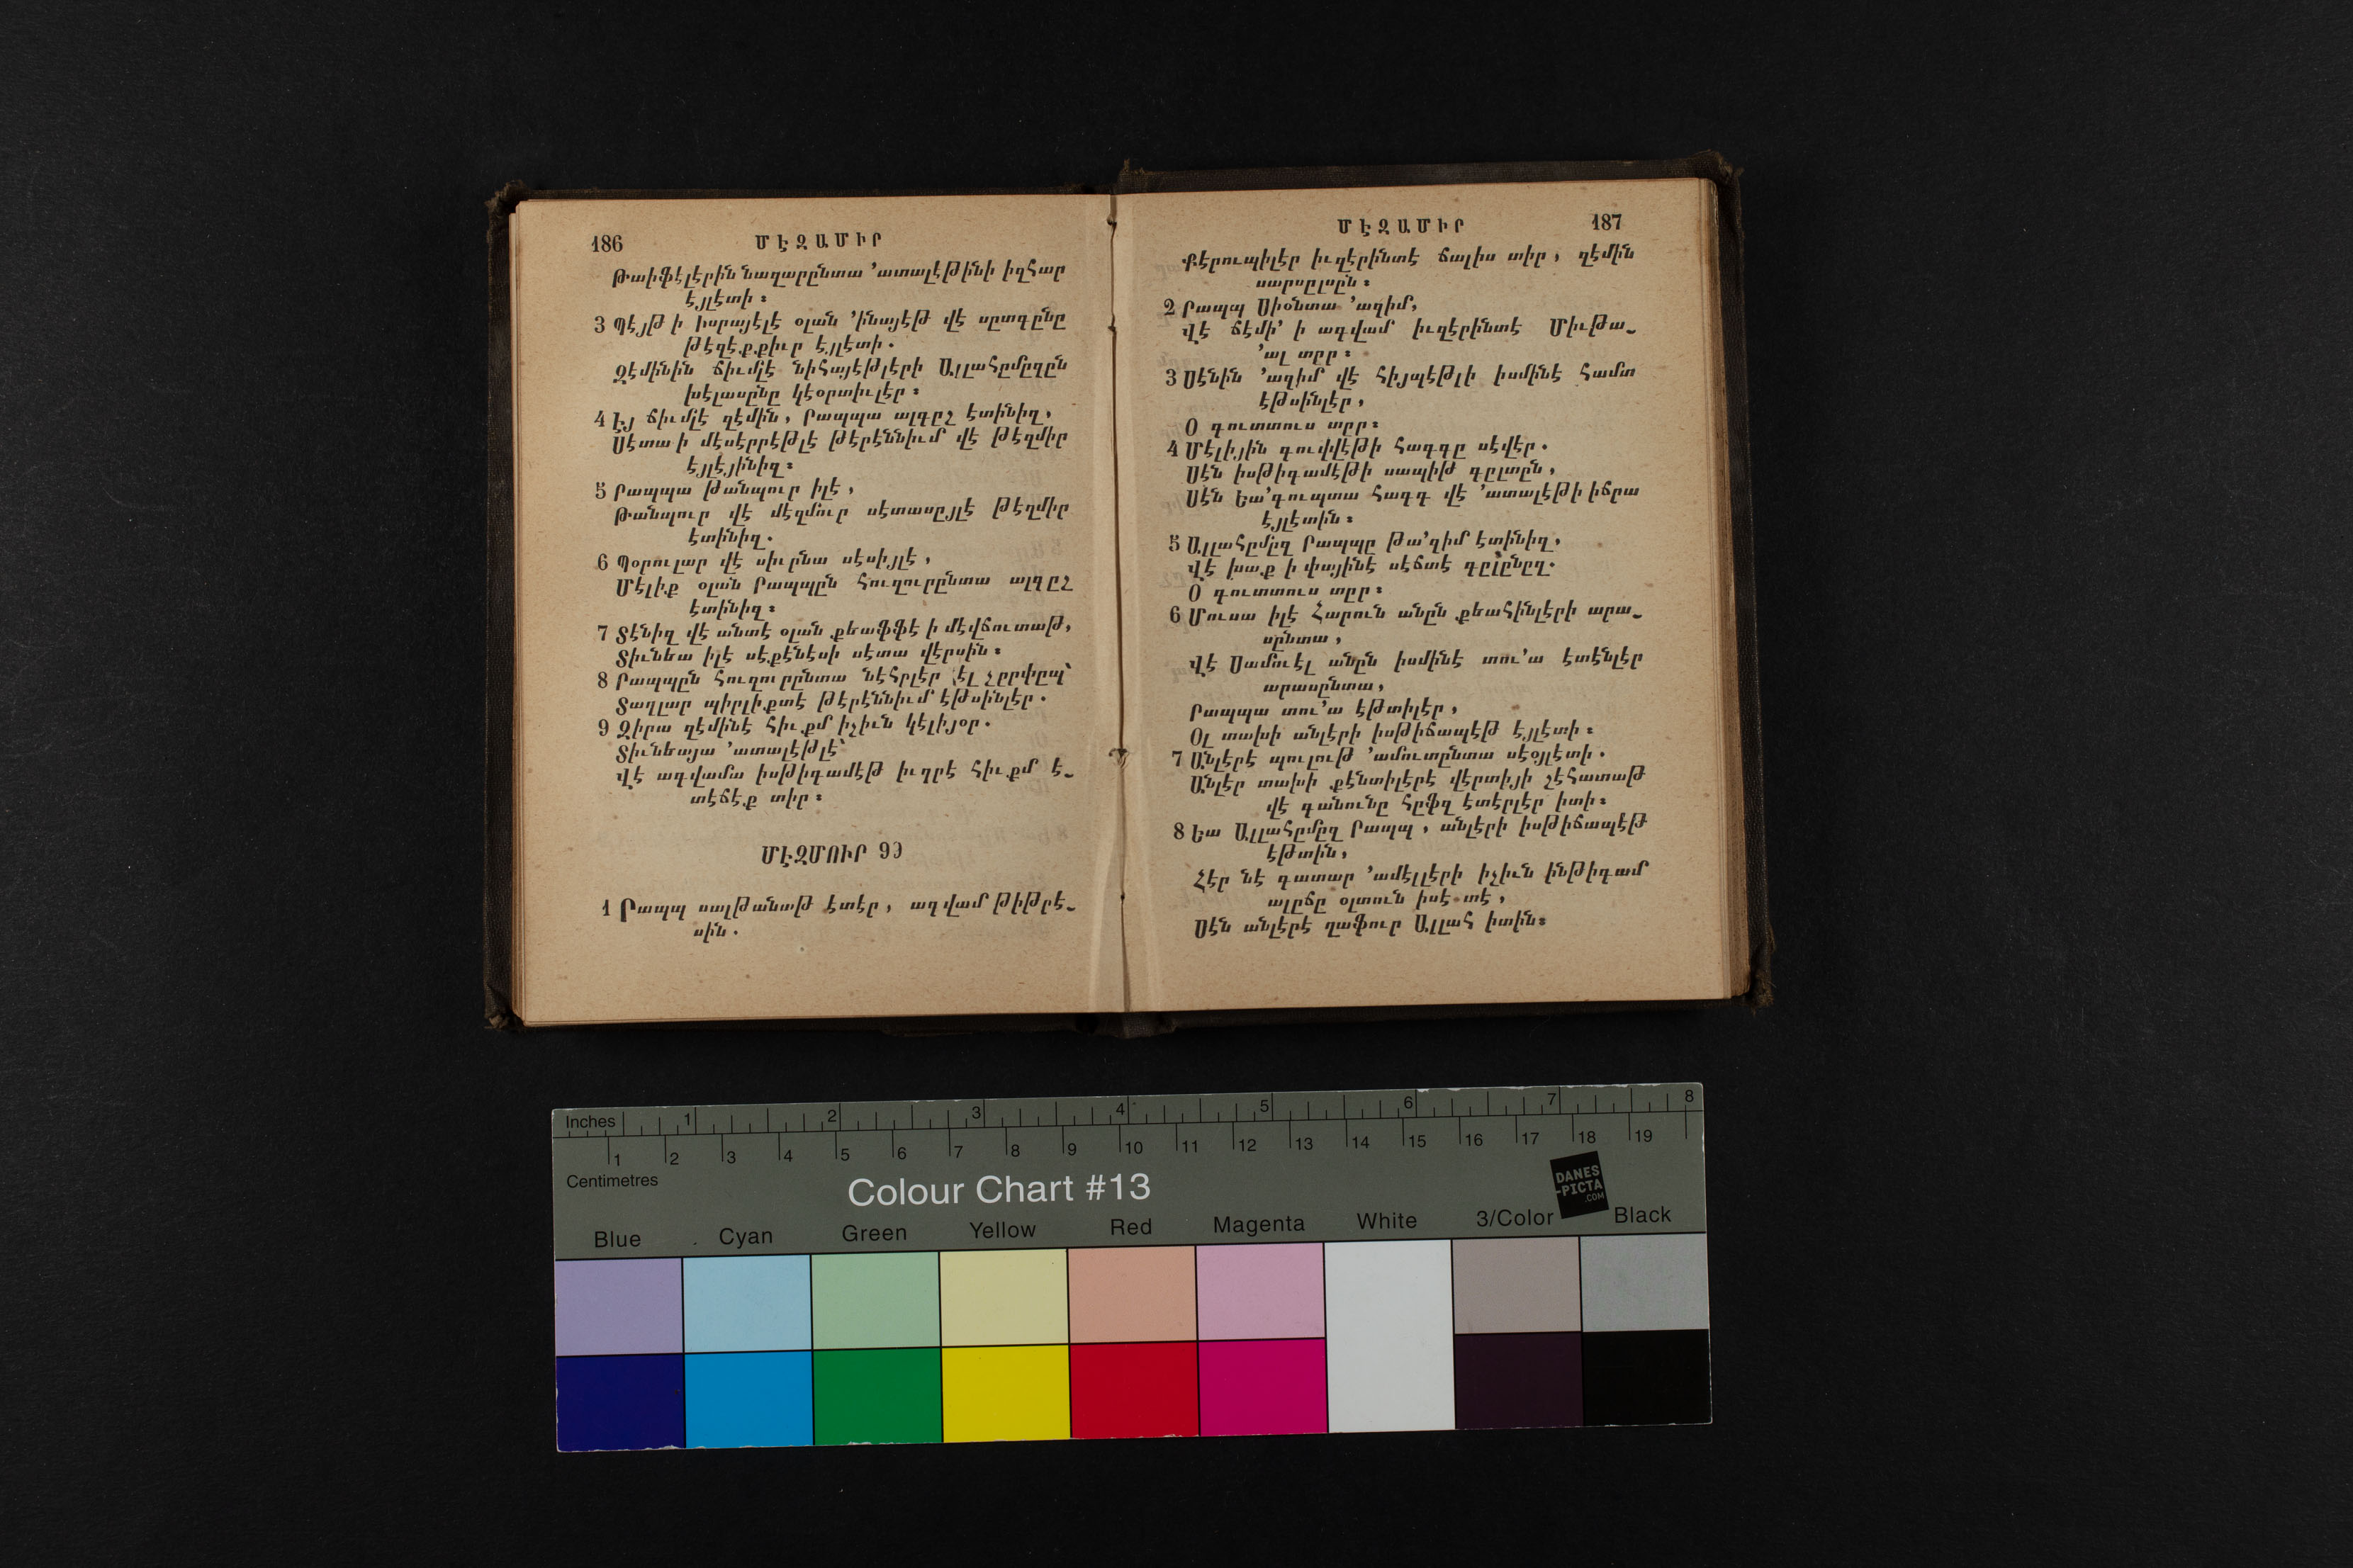 186 ՄԷԶԱՄԻՐ
Թաիֆէլէրին նազարընտա ՚ատալէթինի իզհար
էյլէտի։
3 Պէյթ ի Իսրայէլէ օլան ՚ինայէթ վէ սըտգընը
թէզէքքիւր էյլէտի.
Զէմինին ճիւմլէ նիհայէթլէրի Ալլահըմըզըն
խէլասընը կէօրտիւլէր։
4 Էյ ճիւմլէ զէմին, Րապպա ալգըշ էտինիզ,
Սէտա ի մէսէրրէթլէ թէրէննիւմ վէ թէզմիր
էյլէյինիզ։
5 Րապպա թանպուր իլէ,
Թանպուր վէ մէզմուր սէտասըյլէ թէզմիր
էտինիզ.
6 Պօրուլար վէ սիւրնա սէսիյլէ,
Մէլիք օլան Րապպըն հուզուրընտա ալգըշ
էտինիզ։
7 Տէնիզ վէ անտէ օլան քեաֆֆէ ի մէվճուտաթ,
Տիւնեա իլէ սէքէնէսի սէտա վէրսին։
8 Րապպըն հուզուրընտա նէհրլէր էլ չըրփըպ՝
Տաղլար պիրլիքտէ թէրէննիւմ էթսինլէր.
9 Զիրա զէմինէ հիւքմ իչիւն կէլիյօր.
Տիւնեայա ՚ատալէթլէ՝
Վէ ագվամա իսթիգամէթ իւզրէ հիւքմ է-
տէճէք տիր։
ՄԷԶՄՈՒՐ 99
1 Րապպ սալթանաթ էտէր, ագվամ թիթրէ-
սին.
ՄԷԶԱՄԻՐ 187
Քէրուպիլէր իւզէրինտէ ճալիս տիր, զէմին
սարսըլսըն։
2 Րապպ Սիօնտա ՚ազիմ,
Վէ ճէմի՚ ի ագվամ իւզէրինտէ Միւթա-
՚ալ տըր։
3 Սէնին ՚ազիմ վէ հիյպէթլի իսմինէ համտ
էթսինլէր,
Օ գուտտուս տըր։
4 Մէլիյին գուվվէթի հագգը սէվէր.
Սէն իսթիգամէթի սապիթ գըլտըն,
Սէն Եա՚գուպտա հագգ վէ ՚ատալէթի իճրա
էյլէտին։
5 Ալլահըմըզ Րապպը թա՚զիմ էտինիզ,
Վէ խաք ի փայինէ սէճտէ գըլընըզ.
Օ գուտտուս տըր։
6 Մուսա իլէ Հարուն անըն քեահինլէրի արա-
սընտա,
Վէ Սամուէլ անըն իսմինէ տու՚ա էտէնլէր
արասընտա,
Րապպա տու՚ա էթտիլէր,
Օլ տախի անլէրի իսթիճապէթ էյլէտի։
7 Անլէրէ պուլութ ՚ամուտընտա սէօյլէտի.
Անլէր տախի քէնտիլէրէ վէրտիյի շէհատաթ
վէ գանունը հըֆզ էտէրլէր իտի։
8 Եա Ալլահըմըզ Րապպ, անլէրի իսթիճապէթ
էթտին,
Հէր նէ գատար ՚ամէլլէրի իչիւն ինթիգամ
ալըճը օլտուն իսէ տէ,
Սէն անլէրէ ղաֆուր Ալլահ իտին։
Inches 1 2 3 4 5 6 7 8
1 2 3 4 5 6 7 8 9 10 11 12 13 14 15 16 17 18 19
Centimetres
Colour Chart #13
DANES
-PICTA
.COM
Blue Cyan Green Yellow Red Magenta White 3/Color Black